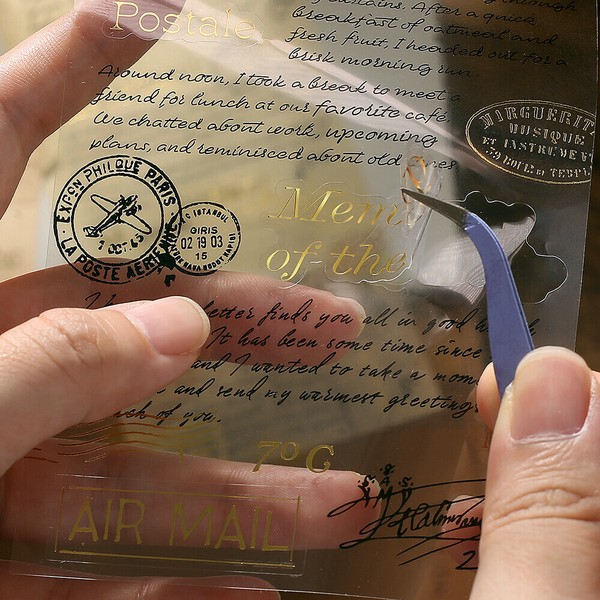 Postale
fountains. After a quick
breakfast of oatmeal and
fresh fruit, I headed out for a
brisk morning run.
Around noon, I took a break to meet a
friend for lunch at our favorite café.
We chatted about work, upcoming
plans, and reminisced about old
MIRGUERIT
MUSIQUE
ET INSTRUMENT
EXPON PHILQUE PARIS
1 OCT. 43
LA POSTE AERIENNE
ISTANBUL
GIRIS
02 19 03
15
Menu
of the
letter finds you all in good
It has been some time since
and I wanted to take a
and send my warmest greetings
of you.
7° G
AIR MAIL